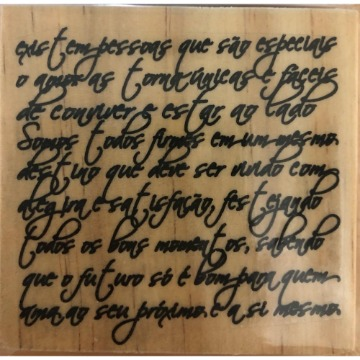 existem pessoas que são especiais
o amor as torna únicas e fáceis
de conviver e estar ao lado
Somos todos firmes em um mesmo
destino que deve ser vivido com
alegira e satisfação, festejando
todos os bons momentos, sabendo
que o futuro só é bom para quem
ama ao seu próximo e a si mesmo.